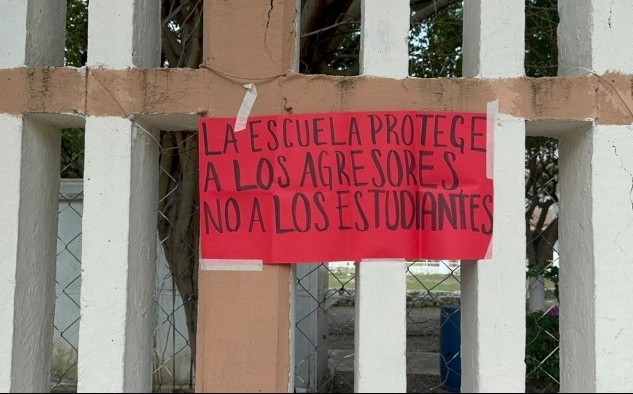 LA ESCUELA PROTEGE
A LOS AGRESORES
NO A LOS ESTUDIANTES